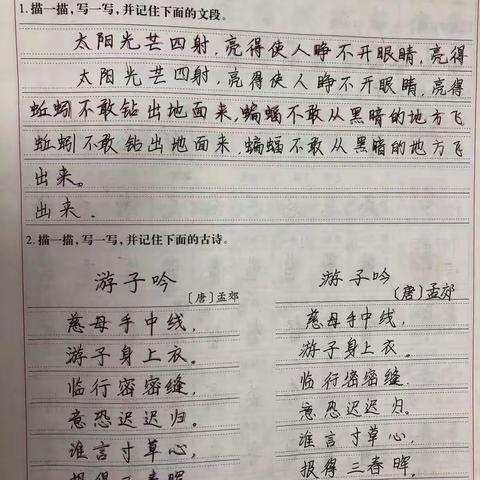 1.描一描,写一写,并记住下面的文段。
太阳光芒四射,亮得使人睁不开眼睛,亮得
太阳光芒四射,亮得使人睁不开眼睛,亮得
蚯蚓不敢钻出地面来,蝙蝠不敢从黑暗的地方飞
蚯蚓不敢钻出地面来,蝙蝠不敢从黑暗的地方飞
出来。
出来.
2.描一描,写一写,并记住下面的古诗。
游子吟 游子吟
〔唐〕孟郊 〔唐〕孟郊
慈母手中线, 慈母手中线,
游子身上衣。 游子身上衣。
临行密密缝, 临行密密缝.
意恐迟迟归。 意恐迟迟归。
谁言寸草心, 谁言寸草心,
报得三春晖 报得三春晖.